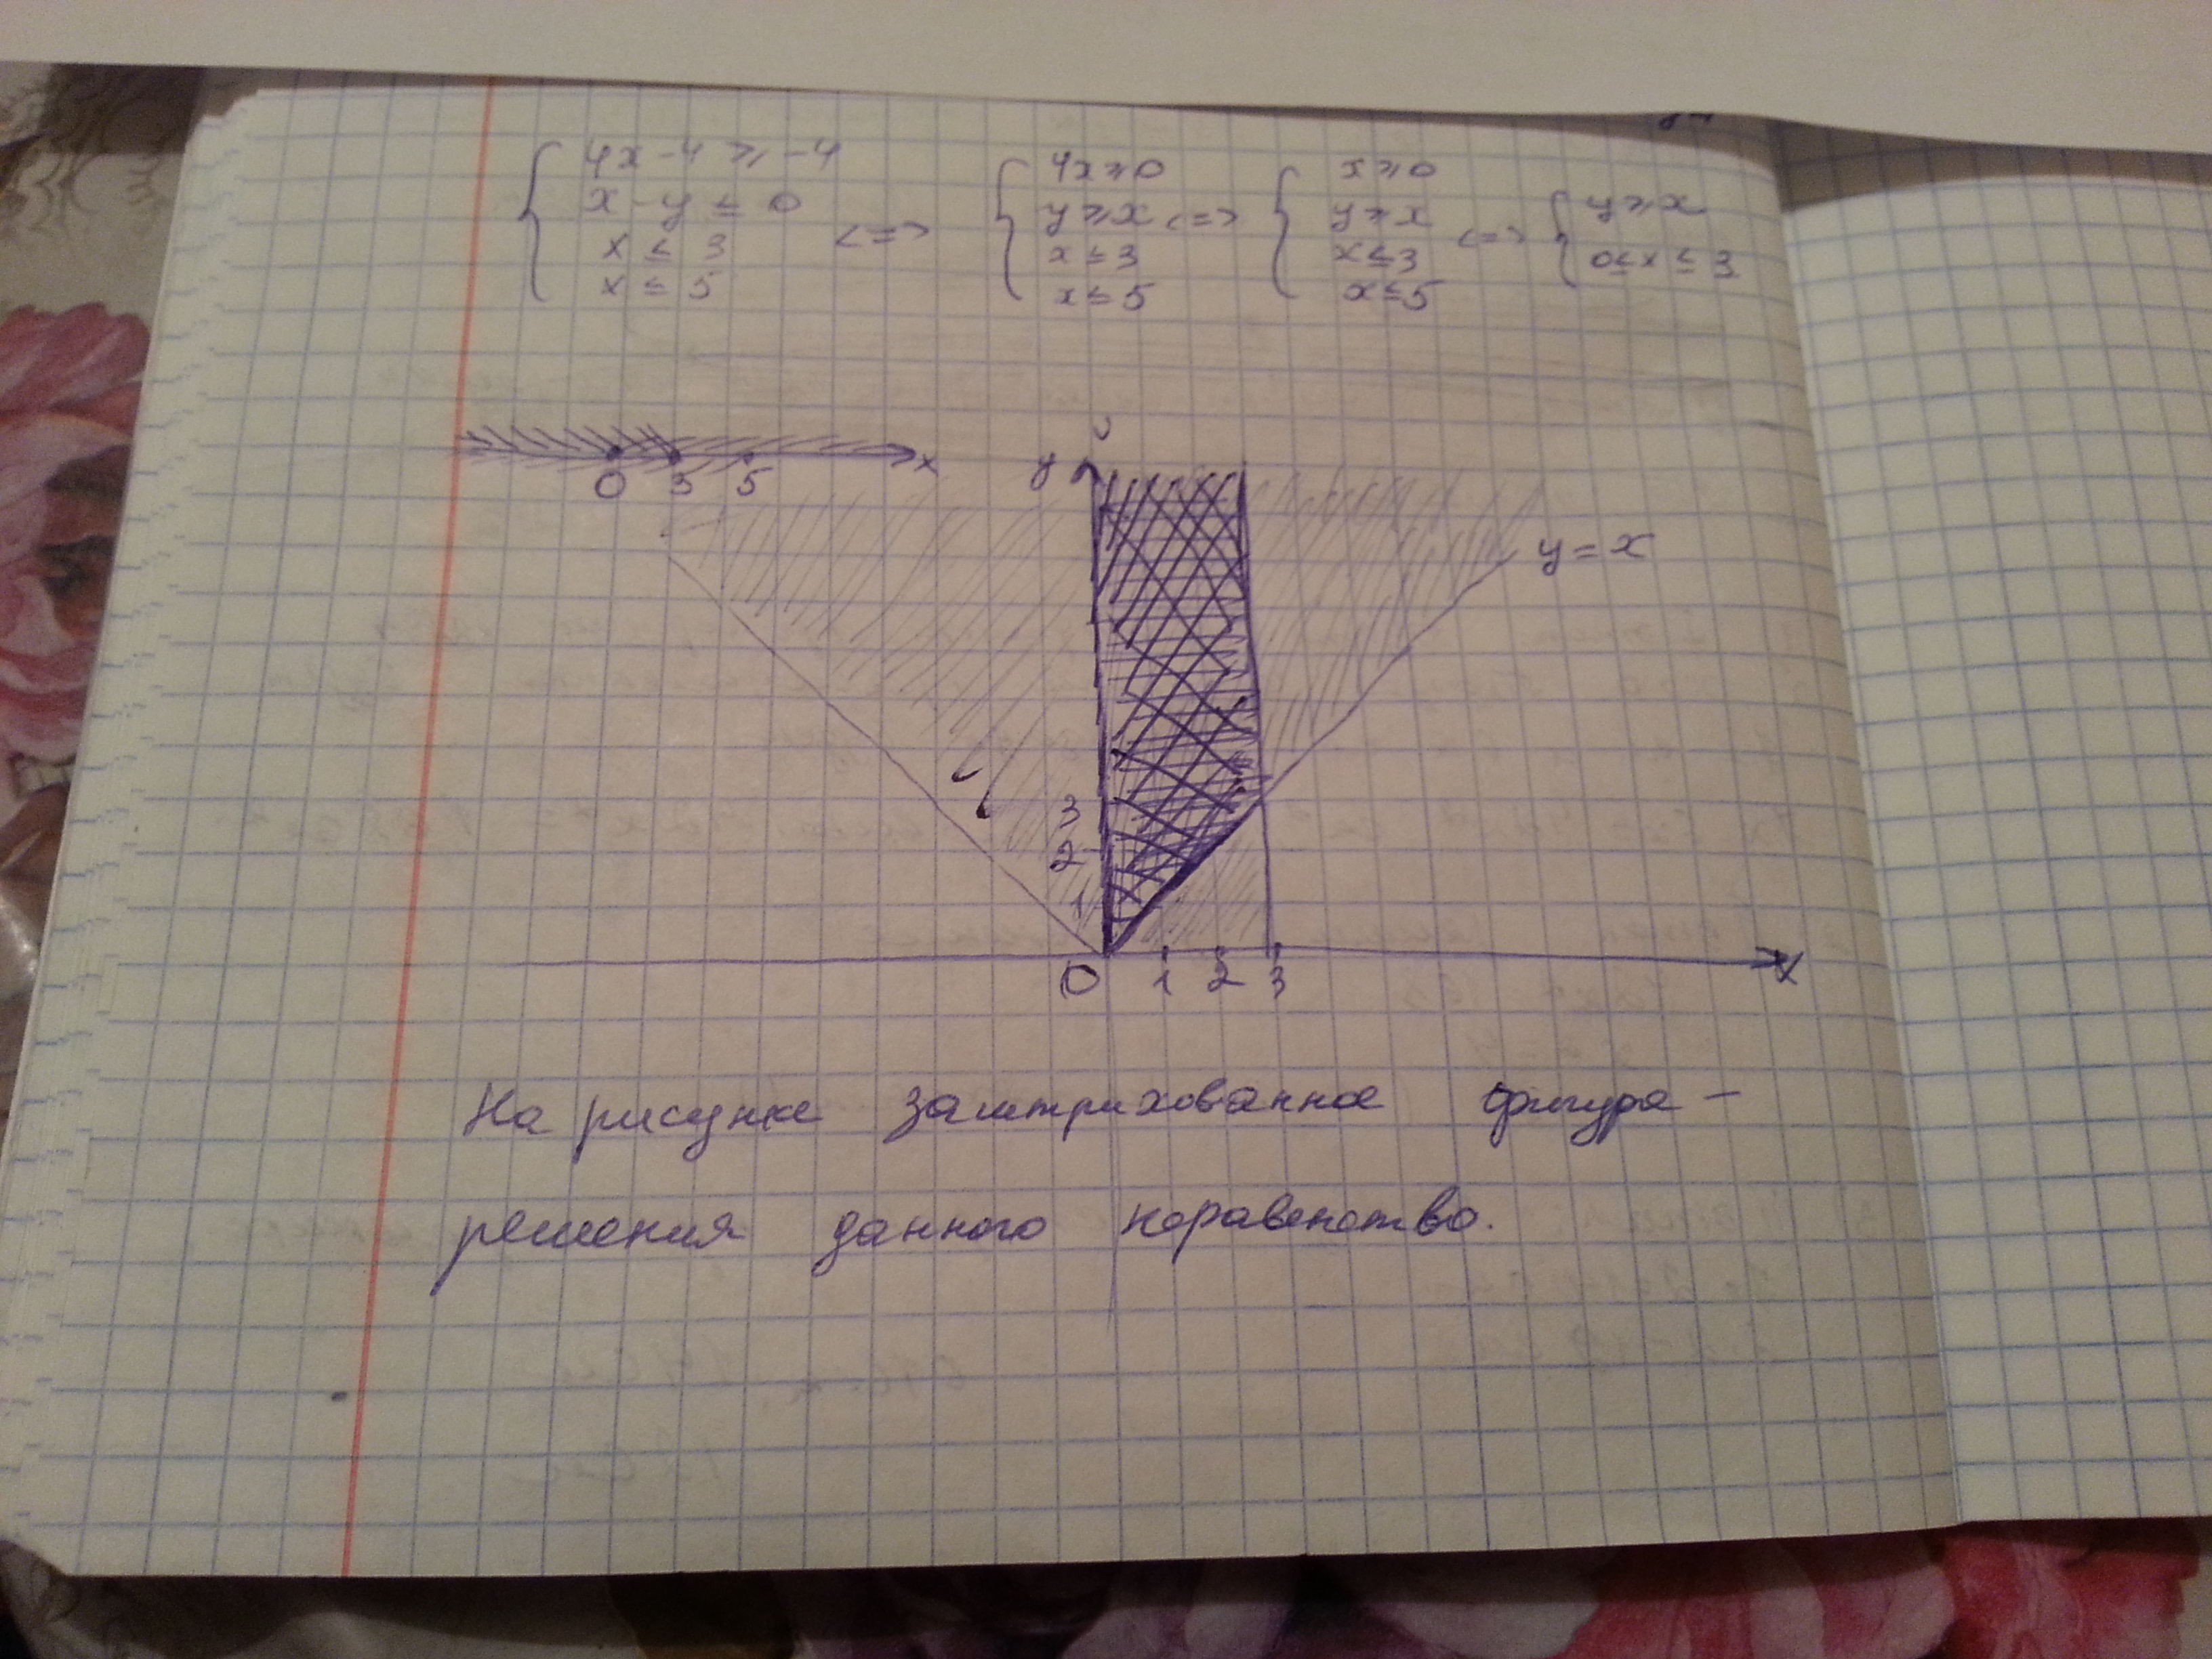 4x-4 ≥ -4
x-y ≤ 0
x ≤ 3
x ≤ 5
<=>
4x ≥ 0
y ≥ x <=>
x ≤ 3
x ≤ 5
x ≥ 0
y ≥ x
x ≤ 3
x ≤ 5
<=>
y ≥ x
0 ≤ x ≤ 3
0 3 5 x
y
y = x
3
2
1
0 1 2 3 x
На рисунке заштрихованная фигура -
решения данного неравенство.